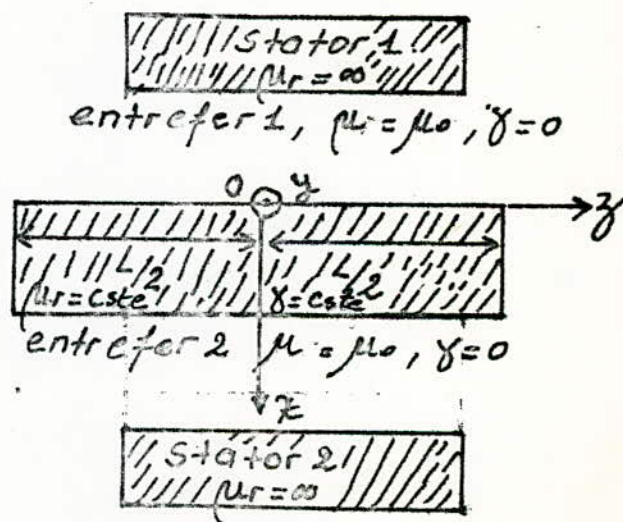 Stator 1
μr = ∞
entrefer 1, μ = μo, γ = 0
O y
z
L/2 L/2
μr = cste γ = cste
entrefer 2 μ = μo, γ = 0
x
Stator 2
μr = ∞